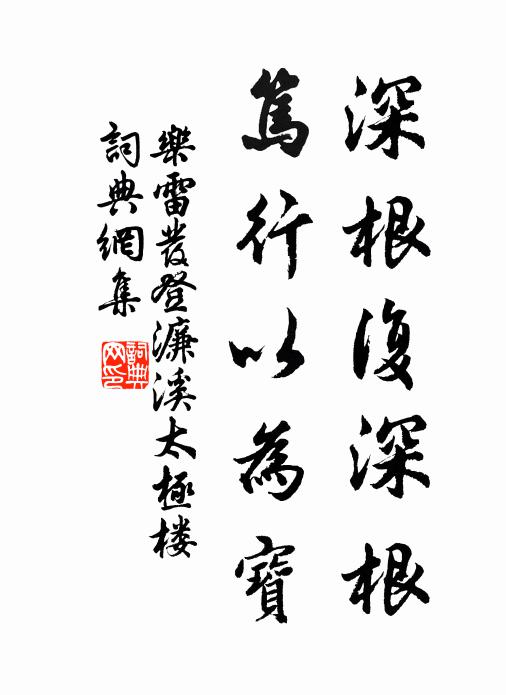 深根復深根
篤行以為寶
樂雷發登濂溪太極楼
詞典網集
詞典
网印